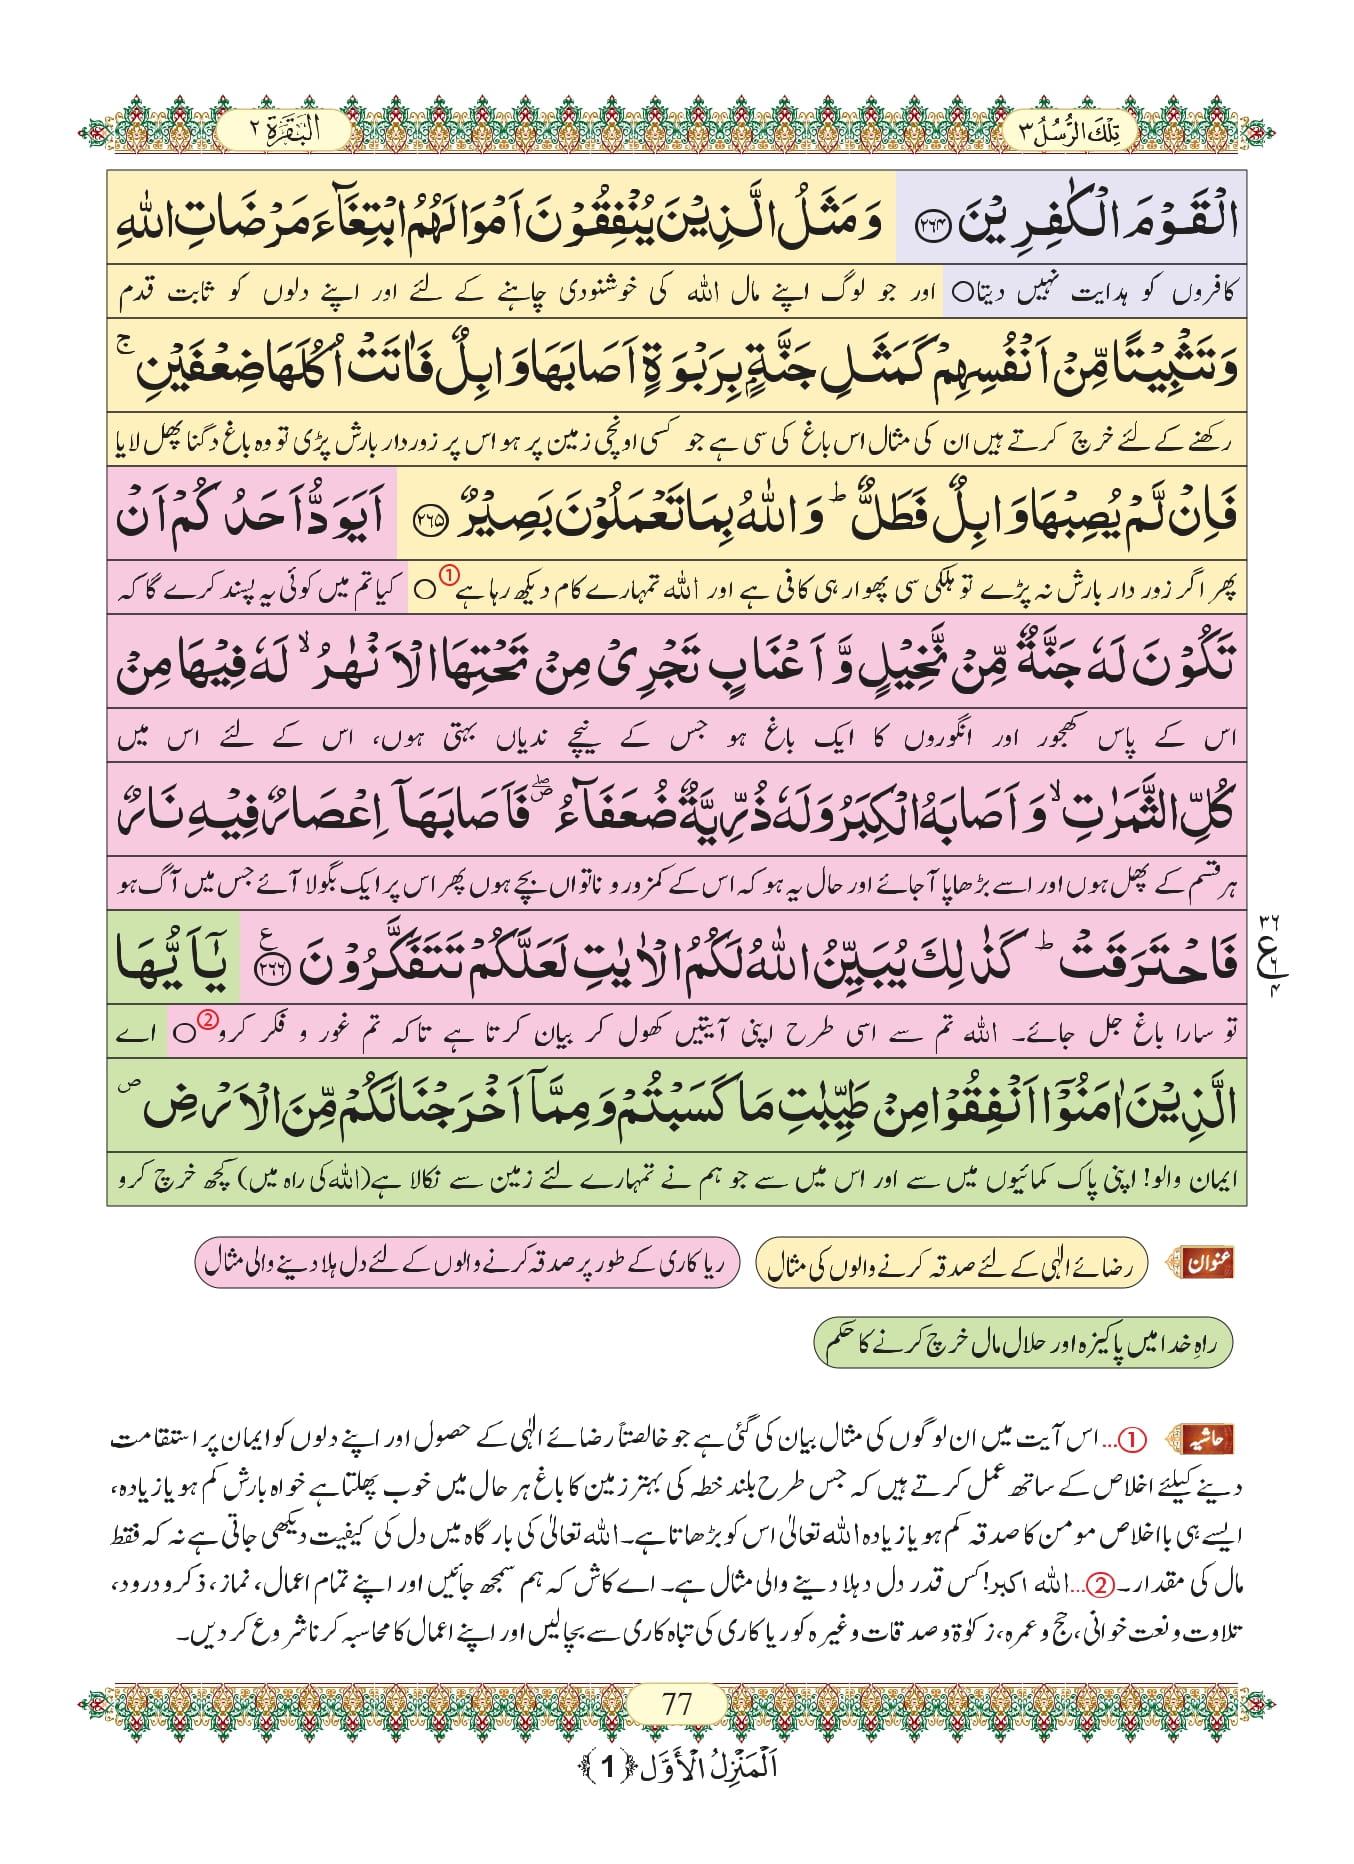 تِلْكَ الرُّسُلُ ٣
اَلْبَقَرَة ٢
الْقَوْمَ الْكٰفِرِیْنَ ﴿۲۶۴﴾ وَ مَثَلُ الَّذِیْنَ یُنْفِقُوْنَ اَمْوَالَهُمُ ابْتِغَآءَ مَرْضَاتِ اللهِ
کافروں کو ہدایت نہیں دیتا○ اور جو لوگ اپنے مال اللہ کی خوشنودی چاہنے کے لئے اور اپنے دلوں کو ثابت قدم
وَ تَثْبِیْتًا مِّنْ اَنْفُسِهِمْ كَمَثَلِ جَنَّةٍۭ بِرَبْوَةٍ اَصَابَهَا وَابِلٌ فَاٰتَتْ اُكُلَهَا ضِعْفَیْنِ ۚ
رکھنے کے لئے خرچ کرتے ہیں ان کی مثال اس باغ کی سی ہے جو کسی اونچی زمین پر ہو اس پر زوردار بارش پڑی تو وہ باغ دگنا پھل لایا
فَاِنْ لَّمْ یُصِبْهَا وَابِلٌ فَطَلٌّ ؕ وَ اللهُ بِمَا تَعْمَلُوْنَ بَصِیْرٌ ﴿۲۶۵﴾ اَیَوَدُّ اَحَدُكُمْ اَنْ
پھر اگر زور دار بارش نہ پڑے تو ہلکی سی پھوار ہی کافی ہے اور اللہ تمہارے کام دیکھ رہا ہے① ○ کیا تم میں کوئی یہ پسند کرے گا کہ
تَكُوْنَ لَهٗ جَنَّةٌ مِّنْ نَّخِیْلٍ وَّ اَعْنَابٍ تَجْرِیْ مِنْ تَحْتِهَا الْاَنْهٰرُ ۙ لَهٗ فِیْهَا مِنْ
اس کے پاس کھجور اور انگوروں کا ایک باغ ہو جس کے نیچے ندیاں بہتی ہوں، اس کے لئے اس میں
كُلِّ الثَّمَرٰتِ ۙ وَ اَصَابَهُ الْكِبَرُ وَ لَهٗ ذُرِّیَّةٌ ضُعَفَآءُ ۪ۖ فَاَصَابَهَاۤ اِعْصَارٌ فِیْهِ نَارٌ
ہر قسم کے پھل ہوں اور اسے بڑھاپا آجائے اور حال یہ ہو کہ اس کے کمزور و ناتواں بچے ہوں پھر اس پر ایک بگولا آئے جس میں آگ ہو
فَاحْتَرَقَتْ ؕ كَذٰلِكَ یُبَیِّنُ اللهُ لَكُمُ الْاٰیٰتِ لَعَلَّكُمْ تَتَفَكَّرُوْنَ ﴿۲۶۶﴾ ع یٰۤاَیُّهَا
٣٦ ع ٦ ٤
تو سارا باغ جل جائے۔ اللہ تم سے اسی طرح اپنی آیتیں کھول کر بیان کرتا ہے تاکہ تم غور و فکر کرو② ○ اے
الَّذِیْنَ اٰمَنُوْۤا اَنْفِقُوْا مِنْ طَیِّبٰتِ مَا كَسَبْتُمْ وَ مِمَّاۤ اَخْرَجْنَا لَكُمْ مِّنَ الْاَرْضِ ۪
ایمان والو! اپنی پاک کمائیوں میں سے اور اس میں سے جو ہم نے تمہارے لئے زمین سے نکالا ہے (اللہ کی راہ میں) کچھ خرچ کرو
عنوان رضائے الٰہی کے لئے صدقہ کرنے والوں کی مثال ریاکاری کے طور پر صدقہ کرنے والوں کے لئے دل ہلا دینے والی مثال
راہِ خدا میں پاکیزہ اور حلال مال خرچ کرنے کا حکم
حاشیہ ①... اس آیت میں ان لوگوں کی مثال بیان کی گئی ہے جو خالصتاً رضائے الٰہی کے حصول اور اپنے دلوں کو ایمان پر استقامت
دینے کیلئے اخلاص کے ساتھ عمل کرتے ہیں کہ جس طرح بلند خطہ کی بہتر زمین کا باغ ہر حال میں خوب پھلتا ہے خواہ بارش کم ہو یا زیادہ،
ایسے ہی بااخلاص مومن کا صدقہ کم ہو یا زیادہ اللہ تعالیٰ اس کو بڑھاتا ہے۔ اللہ تعالیٰ کی بارگاہ میں دل کی کیفیت دیکھی جاتی ہے نہ کہ فقط
مال کی مقدار۔ ②... اللہ اکبر! کس قدر دل دہلا دینے والی مثال ہے۔ اے کاش کہ ہم سمجھ جائیں اور اپنے تمام اعمال، نماز، ذکر و درود،
تلاوت و نعت خوانی، حج و عمرہ، زکوٰۃ و صدقات وغیرہ کو ریاکاری کی تباہ کاری سے بچالیں اور اپنے اعمال کا محاسبہ کرنا شروع کردیں۔
77
اَلْمَنْزِلُ الْاَوَّل ﴿1﴾